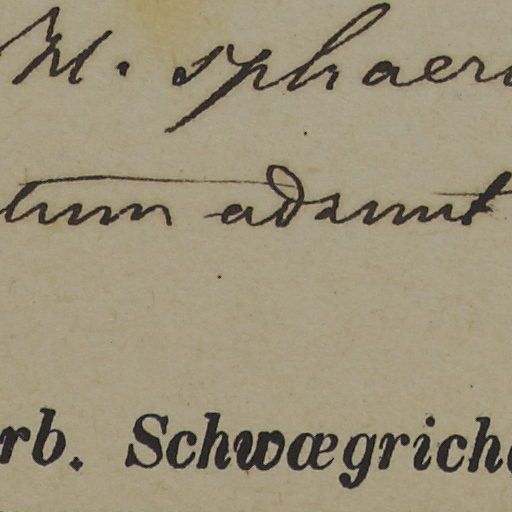 M. sphaer
tum adsunt
rb. Schwægrich